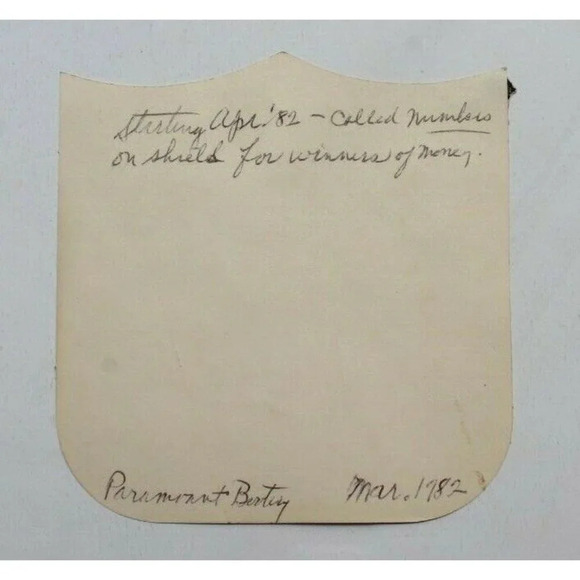 Starting Apr. '82 - Called Numbers
on shield for winners of money.
Paramount
Mar. 1982